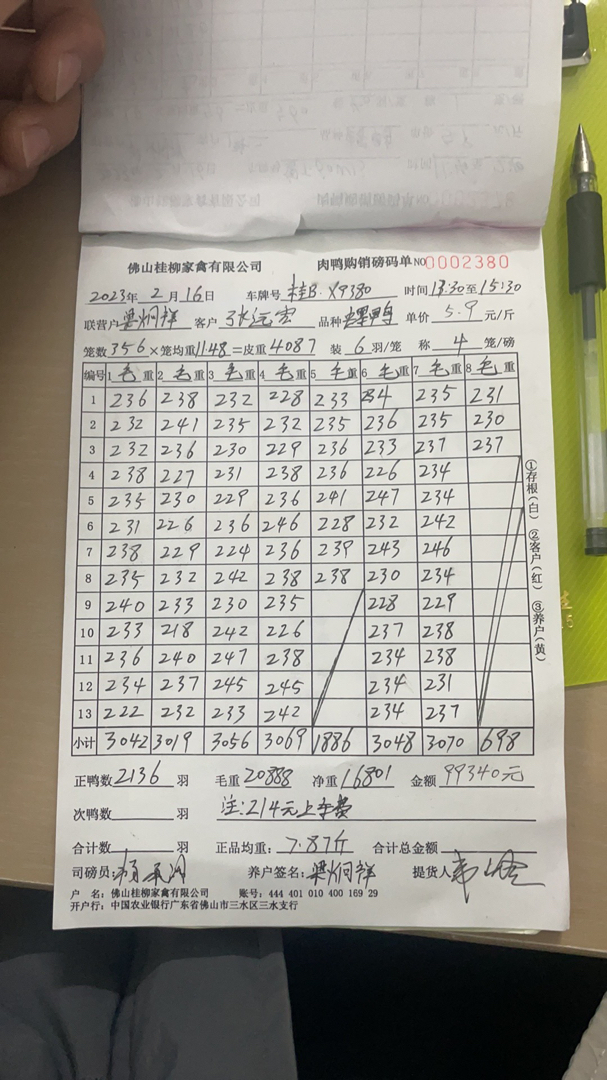 佛山桂柳家禽有限公司 肉鸭购销磅码单 NO 0002380
2023年 2 月 16 日 车牌号 桂B·X9380 时间 13:30 至 15:30
联营户 梁炯祥 客户 张远宏 品种 单价 5.9 元/斤
笼数 356 ×笼均重 11.48 =皮重 4087 装 6 羽/笼 称 4 笼/磅
编号 1 毛 重 2 毛 重 3 毛 重 4 毛 重 5 毛 重 6 毛 重 7 毛 重 8 毛 重
1 236 238 232 228 233 234 235 231
2 232 241 235 232 235 236 235 230
3 232 236 230 229 236 233 237 237
4 238 227 231 238 236 226 234
5 235 230 229 236 241 247 234
6 231 226 236 246 228 232 242
7 238 229 224 236 239 243 246
8 235 232 242 238 238 230 234
9 240 233 230 235 228 229
10 233 218 242 226 237 238
11 236 240 247 238 234 238
12 234 237 245 245 234 231
13 222 232 233 242 234 237
小计 3042 3019 3056 3069 1886 3048 3070 698
正鸭数 2136 羽 毛重 20888 净重 16801 金额 99340元
次鸭数 羽 注:214元上车费
合计数 羽 正品均重: 7.87斤 合计总金额
司磅员: 养户签名: 梁炯祥 提货人
户 名: 佛山桂柳家禽有限公司 账号: 444 401 010 400 169 29
开户行: 中国农业银行广东省佛山市三水区三水支行
①存根(白) ②客户(红) ③养户(黄)